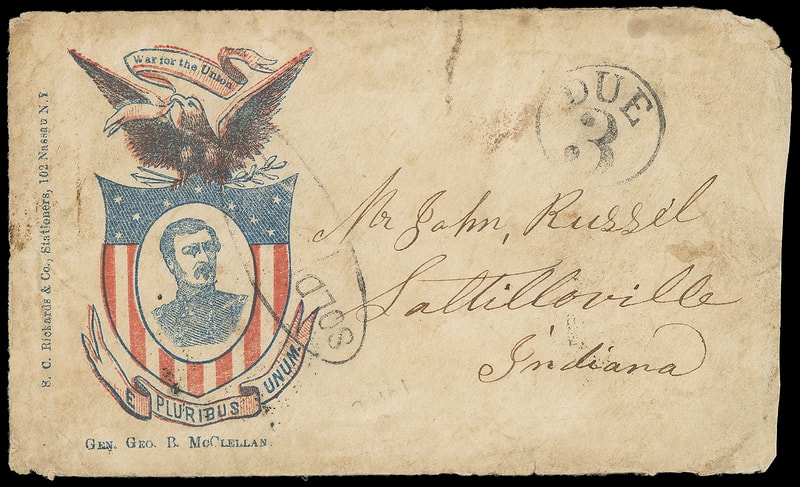 War for the Union
S. C. Rickards & Co., Stationers, 102 Nassau N.Y
DUE
3
Mr John, Russil
Lattilloville
Indiana
SOLD
E PLURIBUS UNUM.
GEN. GEO. B. MCCLELLAN.